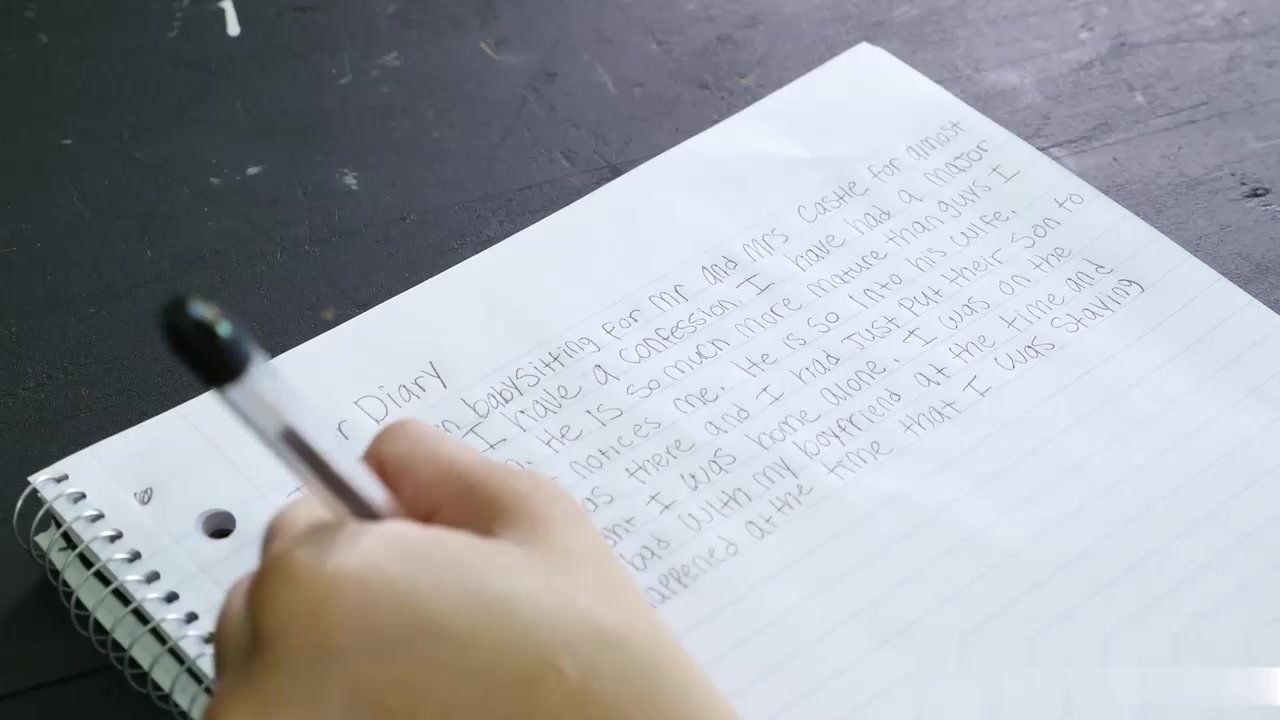 r Diary
babysitting for Mr and Mrs Castle for almost
I have a confession. I have had a major
. He is so much more mature than guys I
notices me. He is so into his wife.
as there and I had just put their son to
I was home alone. I was on the
bad with my boyfriend at the time and
appened at the time that I was staying